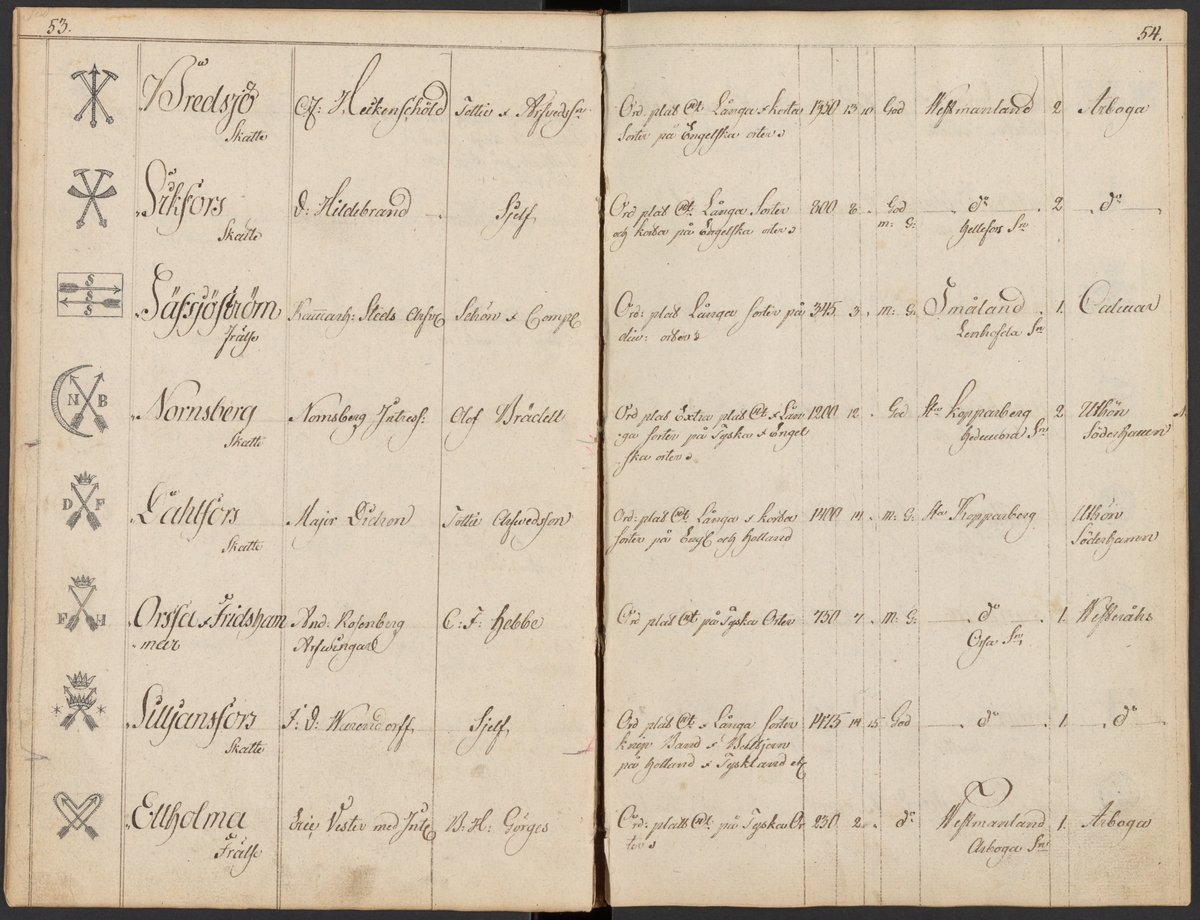 53.
54.
Bredsjö
Skatte
Cf: Heckenschöld
Tottie & Arfvedssn
Ord. plåt Långa & korta
Sorter på Engelska orter
1350 13 10 God
Westmanland 2 Arboga
Sikfors
Skatte
D: Hildebrand
Sjelf
Ord plåt Långa Sorter
och korta på Engelska orter
800 8 God
m: G:
do 2 do
Hellefors Sn
Säfsjöström
Frälse
S
S
S
Steds Arfv
Schön & Comp
Ord: plåt Långa Sorter på
div: orter
345 3 m: G:
Småland 1. Calmar
Lenhofda Sn
N B
Nornsberg
Skatte
Nornsberg Intress:
Olof Brädell
Ord plåt Extra plåt & Lån
ga Sorter på Tyska & Engel
ska orter
1200 12 God
Sta Kopparberg 2 Uthön
Hedemora Sn Söderhamn
D F
Dahlfors
Skatte
Major Didron
Tottie Arfwedsson
Ord: plåt Långa & korta
sorter på Engl och Holland
1400 14 m: G:
Sta Kopparberg
Uthön
Söderhamn
F H
Orssa & Fridsham
mar
And: Rosenberg
Arfwingar
C: F: Hebbe
Ord plåt på Tyska Orter
750 7 m: G:
do 1. Westeråhs
Orsa Sn
Siljansfors
Skatte
J: D: Warendorff
Sjelf
Ord plåt & Långa Sorter
knip Band & Bultjern
på Holland & Tyskland etc
1475 14 15 God
do 1. do
Ellholma
Frälse
Eric Vester med Int
B: H: Görges
Ord: platt på Tyska Or
ter
250 2 do
Westmanland 1. Arboga
Arboga Sn